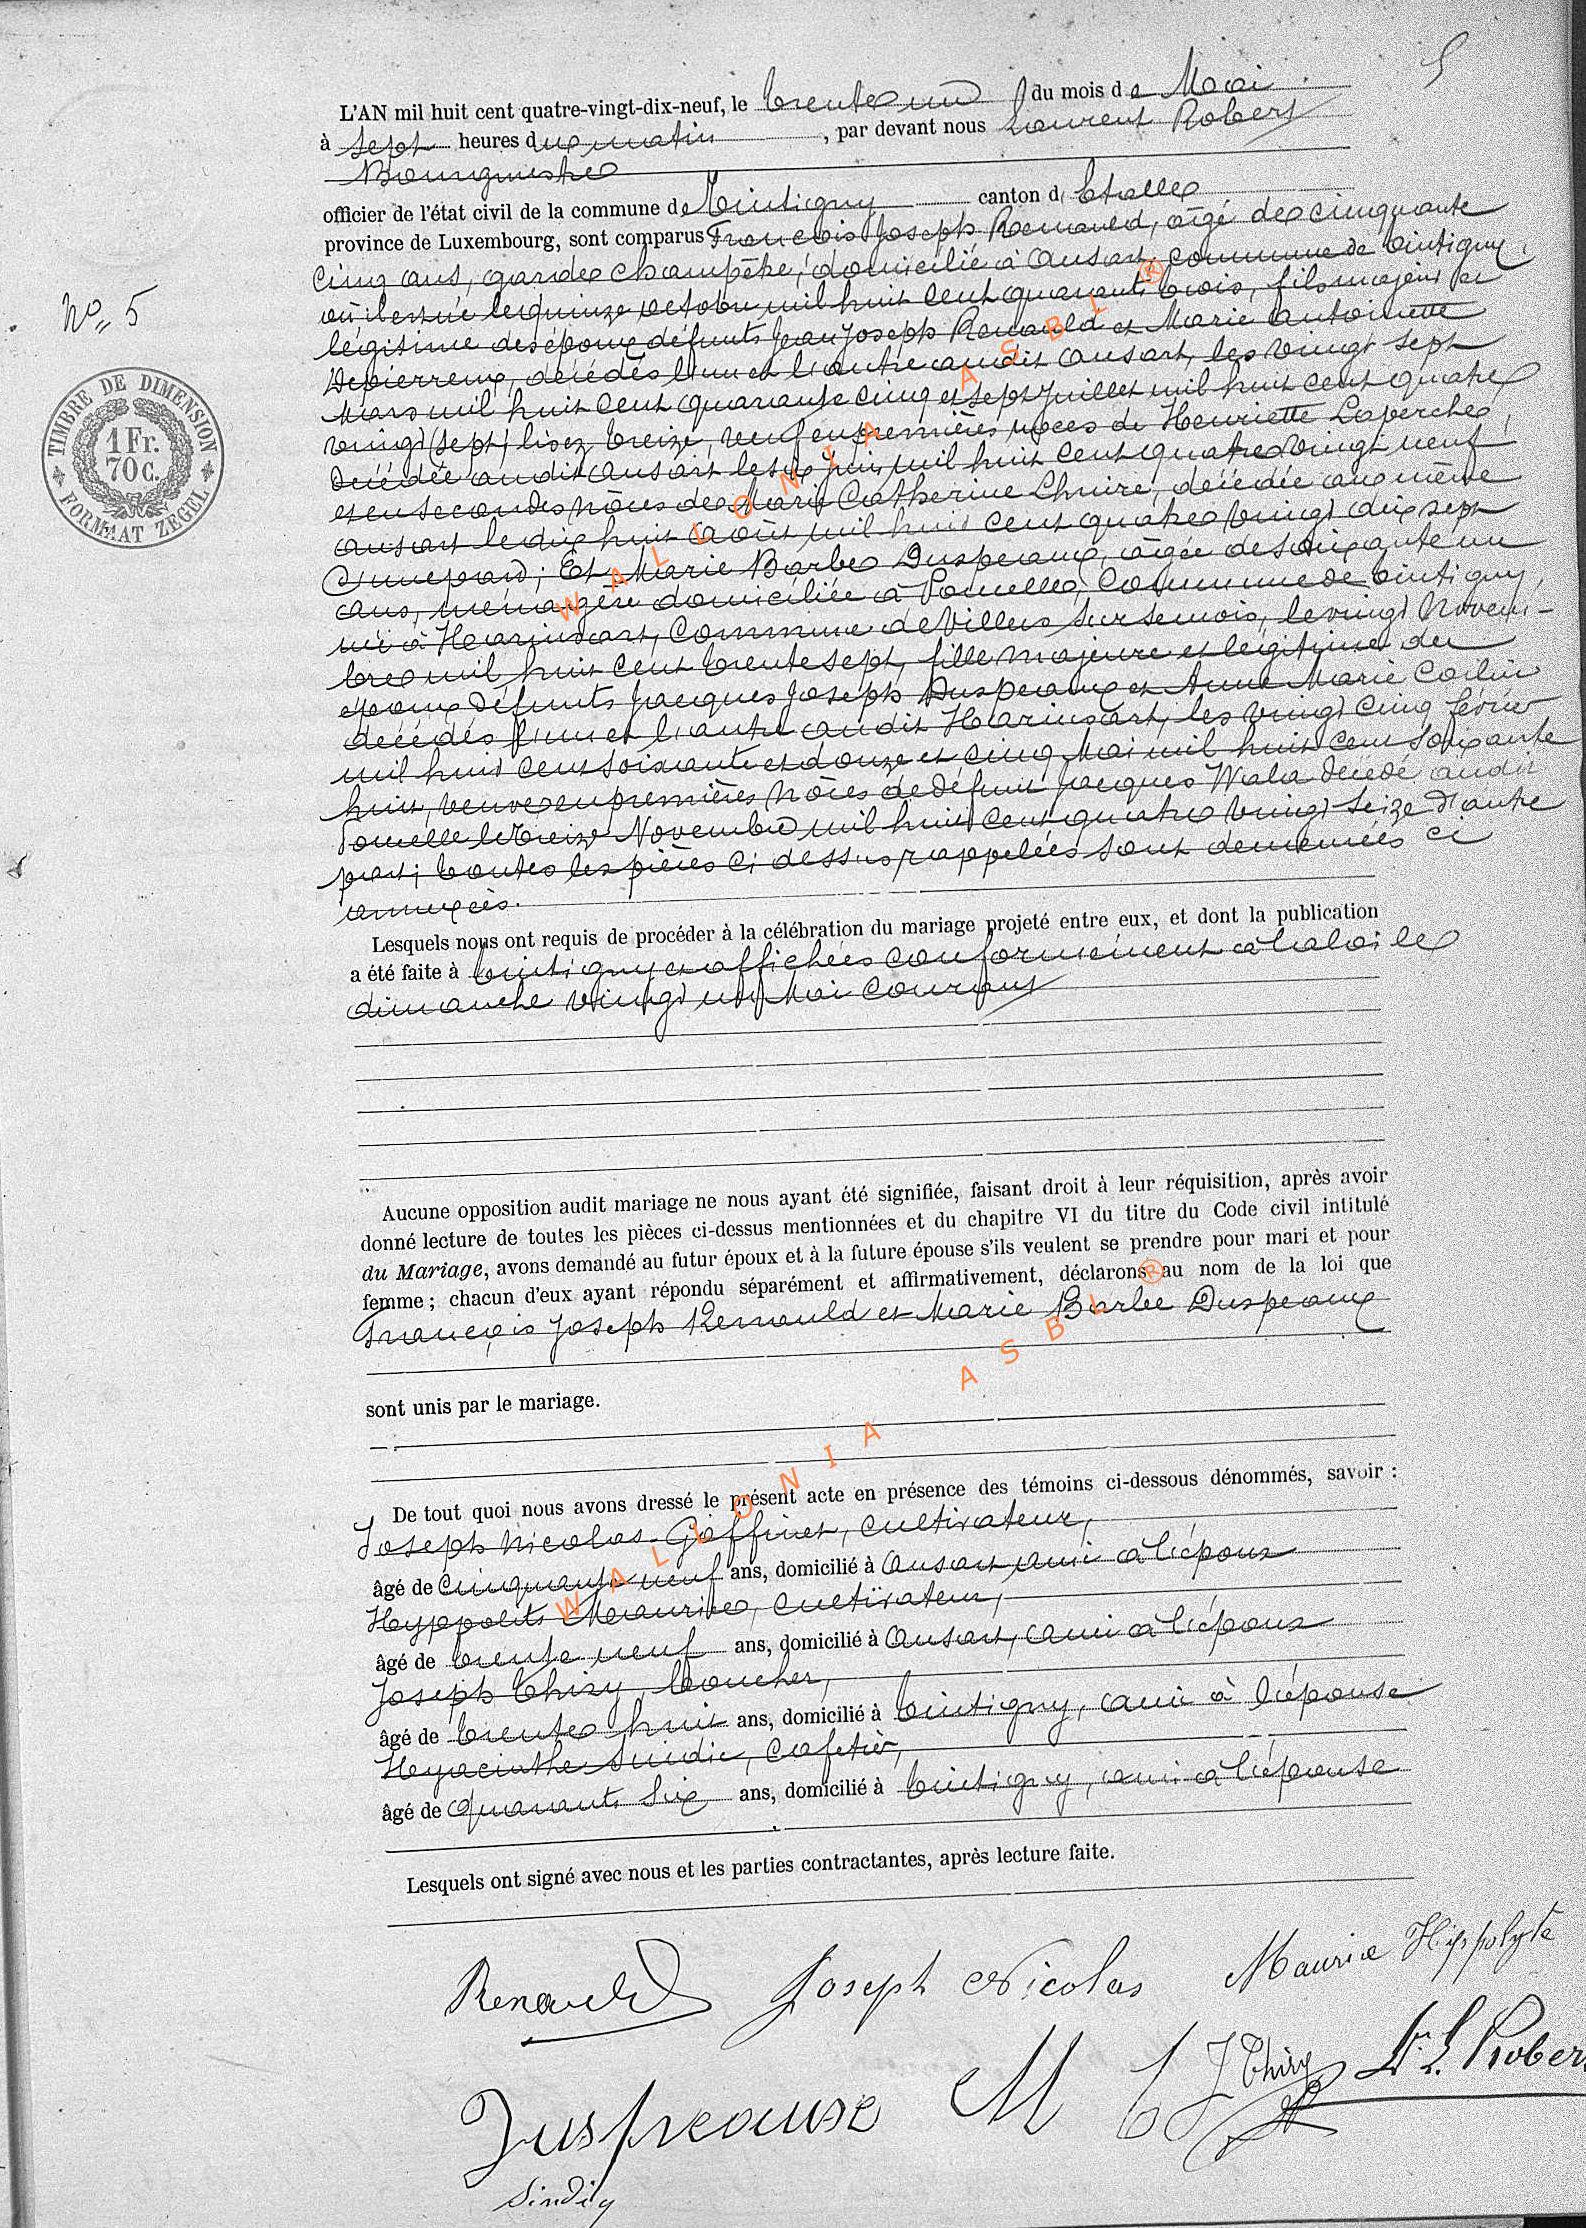 5
L'AN mil huit cent quatre-vingt-dix-neuf, le trente un du mois de Mai
à sept heures du matin, par devant nous Laurent Robert
Bourgmestre
officier de l'état civil de la commune de Tintigny canton d'Etalle
province de Luxembourg, sont comparus François Joseph Renauld, âgé de cinquante
cinq ans, garde champêtre, domicilié à Ansart, commune de Tintigny,
où il est né le quinze octobre mil huit cent quarante trois, fils majeur et
légitime des époux défunts Jean Joseph Renauld et Marie Antoinette
Depierreux, décédés l'un et l'autre audit Ansart, les vingt sept
Mars mil huit cent quarante cinq et sept juillet mil huit cent quatre
vingt (sept) lisez treize, veuf en premières noces de Henriette Laperche,
décédée audit Ansart le six juin mil huit cent quatre vingt neuf
et en secondes nôces de Marie Catherine décédée au même
Ansart le dix huit août mil huit cent quatre vingt dix sept
d'une part; Et Marie Barbe Duspeaux, âgée de soixante un
ans, ménagère domiciliée à Poncelle, Commune de Tintigny,
née à Harinsart, Commune de Villers sur Semois, le vingt Novem-
bre mil huit cent trente sept, fille majeure et légitime des
époux défunts Jacques Joseph Duspeaux et Anne Marie Collin
décédés l'un et l'autre audit Harinsart, les vingt cinq février
mil huit cent soixante et douze et cinq Mai mil huit cent soixante
huit, veuve en premières nôces de défunt Jacques Wala décédé audit
Poncelle le treize Novembre mil huit cent quatre vingt seize d'autre
part; toutes les pièces ci dessus rappelées sont demeurées ci
annexées.
N° 5
TIMBRE DE DIMENSION
1 Fr.
70 c.
FORMAAT ZEGEL
Lesquels nous ont requis de procéder à la célébration du mariage projeté entre eux, et dont la publication
a été faite à Tintigny et affichées conformément à la loi le
dimanche vingt un Mai courant
Aucune opposition audit mariage ne nous ayant été signifiée, faisant droit à leur réquisition, après avoir
donné lecture de toutes les pièces ci-dessus mentionnées et du chapitre VI du titre du Code civil intitulé
du Mariage, avons demandé au futur époux et à la future épouse s'ils veulent se prendre pour mari et pour
femme ; chacun d'eux ayant répondu séparément et affirmativement, déclarons au nom de la loi que
François Joseph Renauld et Marie Barbe Duspeaux
sont unis par le mariage.
De tout quoi nous avons dressé le présent acte en présence des témoins ci-dessous dénommés, savoir :
Joseph Nicolas Goffinet, cultivateur,
âgé de cinquante neuf ans, domicilié à Ansart ami à l'époux
Hyppolite Maurice, cultivateur,
âgé de trente neuf ans, domicilié à Ansart, ami à l'époux
Joseph Thiry, boucher,
âgé de trente huit ans, domicilié à Tintigny, ami à l'épouse
Hyacinthe Sindic, cafetier,
âgé de quarante six ans, domicilié à Tintigny, ami à l'épouse
Lesquels ont signé avec nous et les parties contractantes, après lecture faite.
Renauld Joseph Nicolas Maurice Hippolyte
Duspeause M B J Thiry L. Robert
Sindic
WALLONIA ASBL ®
WALLONIA ASBL ®